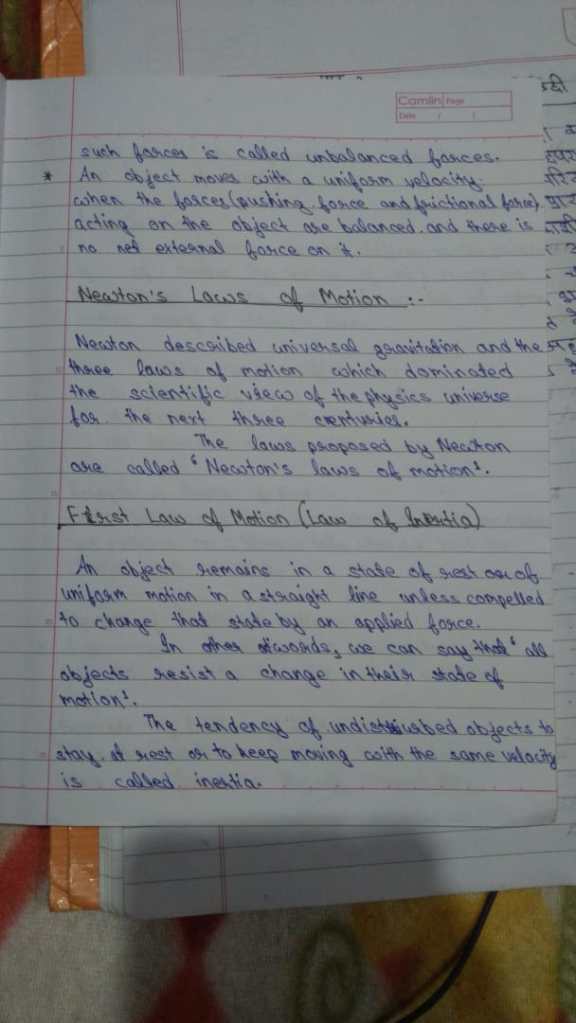 Camlin Page
Date / /
such forces is called unbalanced forces.
* An object moves with a uniform velocity
when the forces (pushing force and frictional force)
acting on the object are balanced and there is
no net external force on it.
Newton's Laws of Motion :-
Newton described universal gravitation and the
three laws of motion which dominated
the scientific view of the physics universe
for the next three centuries.
The laws proposed by Newton
are called 'Newton's laws of motion'.
First Law of Motion (Law of Inertia)
An object remains in a state of rest or of
uniform motion in a straight line unless compelled
to change that state by an applied force.
In other words, we can say that 'all
objects resist a change in their state of
motion'.
The tendency of undisturbed objects to
stay at rest or to keep moving with the same velocity
is called inertia.